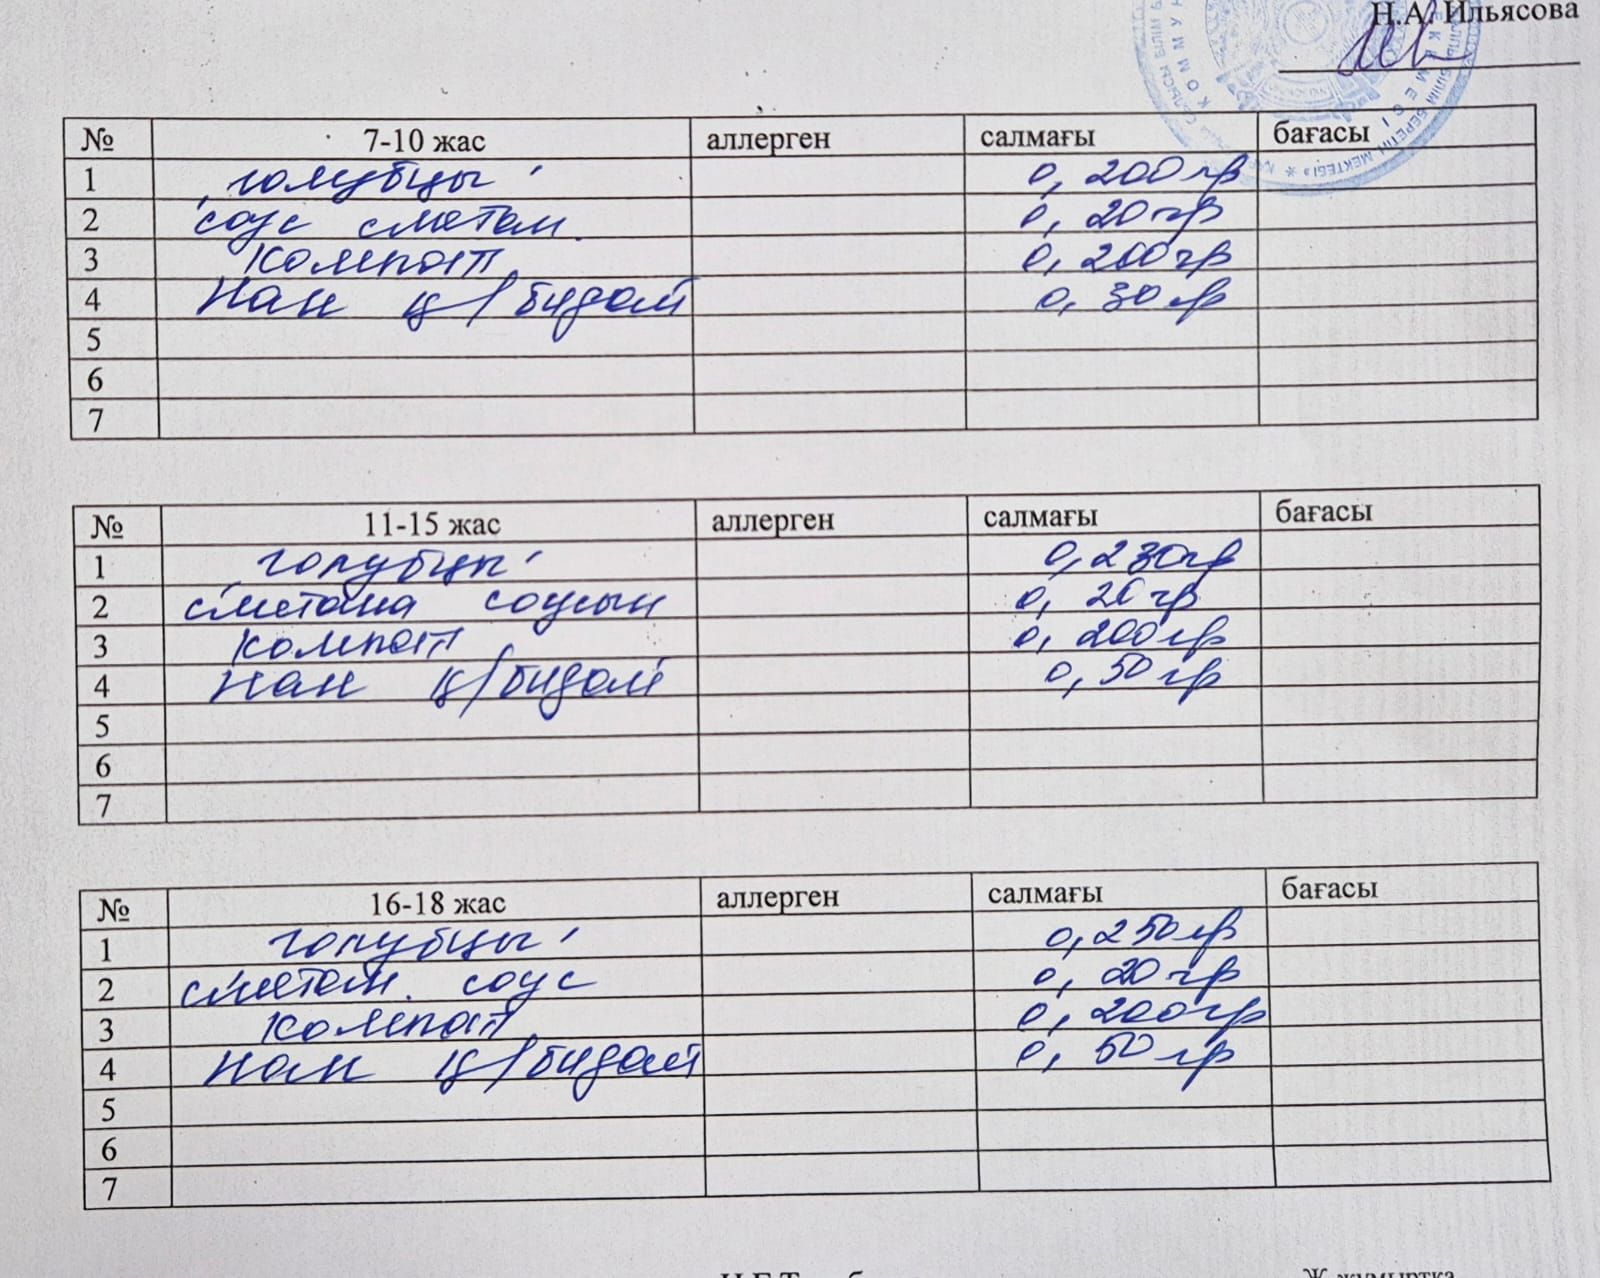 Н.А. Ильясова
№ 7-10 жас аллерген салмағы бағасы
1 голубцы 0,200 гр
2 соус сметан. 0,20 гр
3 Компот 0,200 гр
4 Нан ц/бидай 0,30 гр
5
6
7
№ 11-15 жас аллерген салмағы бағасы
1 голубцы 0,230 гр
2 сметана соусын 0,20 гр
3 Компот 0,200 гр
4 Нан ц/бидай 0,50 гр
5
6
7
№ 16-18 жас аллерген салмағы бағасы
1 голубцы 0,250 гр
2 сметан. соус 0,20 гр
3 Компот 0,200 гр
4 Нан ц/бидай 0,50 гр
5
6
7